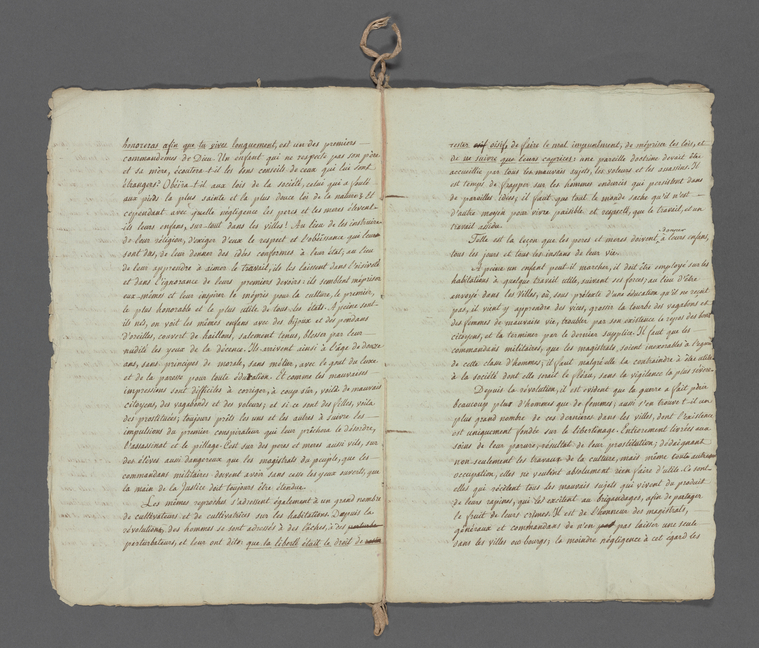 honoreras afin que tu vives longuement, est un des premiers
commandemens de Dieu. Un enfant qui ne respecte pas son père
et sa mère, écoutera-t-il les bons conseils de ceux que lui sont
étrangers? Obéira-t-il aux lois de la société, celui qui a foulé
aux pieds la plus sainte et la plus douce loi de la nature? Et
cependant avec quelle négligence les peres et les meres élèvent-
ils leurs enfans, sur-tout dans les villes! Au lieu de les instruire
de leur réligion, d'exiger d'eux le respect et l'obéissance qui leur
sont dus, de leur donner des idées conformes à leur état, au lieu
de leur apprendre à aimer le travail, ils les laissent dans l'oisiveté
et dans l'ignorance de leurs premiers devoirs: ils semblent mépriser
eux-mêmes et leur inspirer le mépris pour la culture, le premier,
le plus honorable et le plus utile de tous les états. A peine sont-
ils nés, on voit les mêmes enfans avec des bijoux et des pendans
d'oreilles, couvert de haillons, salement tenus, blesser par leur
nudité les yeux de la décence. Ils arrivent ainsi à l'âge de douze
ans, sans principes de morale, sans métier, avec le goût du luxe
et de la paresse pour toute éducation. Et comme les mauvaises
impressions sont difficiles à corriger, à coup sûr, voilà de mauvais
citoyens, des vagabonds et des voleurs; et si ce sont des filles, voila
des prostituées; toujours prêts les uns et les autres à suivre les
impulsions du premier conspirateur qui leur prêchera le désordre,
l'assassinat et le pillage. C'est sur des peres et meres aussi vils, sur
des élèves aussi dangereux que les magistrats du peuple, que les
commandans militaires doivent avoir sans cesse les yeux ouverts, que
la main de la Justice doit toujours être étendue.
Les mêmes reproches s'adressent également à un grand nombre
de cultivateurs et de cultivatrices sur les habitations. Depuis la
révolution, des hommes se sont adressés à des lâches, à des perturba
perturbateurs, et leur ont dit: que la liberté était le droit de
rester oisif de faire le mal impunément, de mépriser les lois, et
de ne suivre que leurs caprices: une pareille doctrine devait être
accueillie par tous les mauvais sujets, les voleurs et les assassins. Il
est temps de frapper sur les hommes endurcis qui persistent dans
de pareilles idées; il faut que tout le monde sache qu'il n'est
d'autre moyen pour vivre paisible et respecté, que le travail, et un
travail assidu.
donner
Telle est la leçon que les peres et meres doivent à leurs enfans,
tous les jours et tous les instans de leur vie.
A peine un enfant peut-il marcher, il doit être employé sur les
habitations à quelque travail utile, suivant ses forces, au lieu d'être
envoyé dans les villes, où, sous prétexte d'une éducation qu'il ne reçoit
pas, il vient y apprendre des vices, grossir la tourbe des vagabons et
des femmes de mauvaise vie, troubler par son existence le repos des bons
citoyens, et la terminer par le dernier supplice. Il faut que les
commandans militaires, que les magistrats, soient inexorables à l'égard
de cette classe d'hommes; il faut malgré elle la contraindre à être utile
à la société dont elle serait le fléau, sans la vigilance la plus sévère.
Depuis la révolution, il est évident que la guerre a fait périr
beaucoup plus d'hommes que de femmes; aussi s'en trouve-t-il un
plus grand nombre de ces dernières dans les villes, dont l'existence
est uniquement fondée sur le libertinage. Entièrement livrées aux
soins de leur parure, résultat de leur prostitution; dédaignant
non seulement les travaux de la culture, mais même toute autre
occupation, elles ne veulent absolument rien faire d'utile. Ce sont
elles qui recèlent tous les mauvais sujets qui vivent du produit
de leurs rapines, qui les excitent au brigandage, afin de partager
le fruit de leurs crimes. Il est de l'honneur des magistrats,
généraux et commandans de n'en pas laisser une seule
dans les villes ou bourgs; la moindre négligence à cet égard les